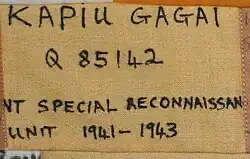 KAPIU GAGAI
Q 85142
NT SPECIAL RECONNAISSAN
UNIT 1941-1943